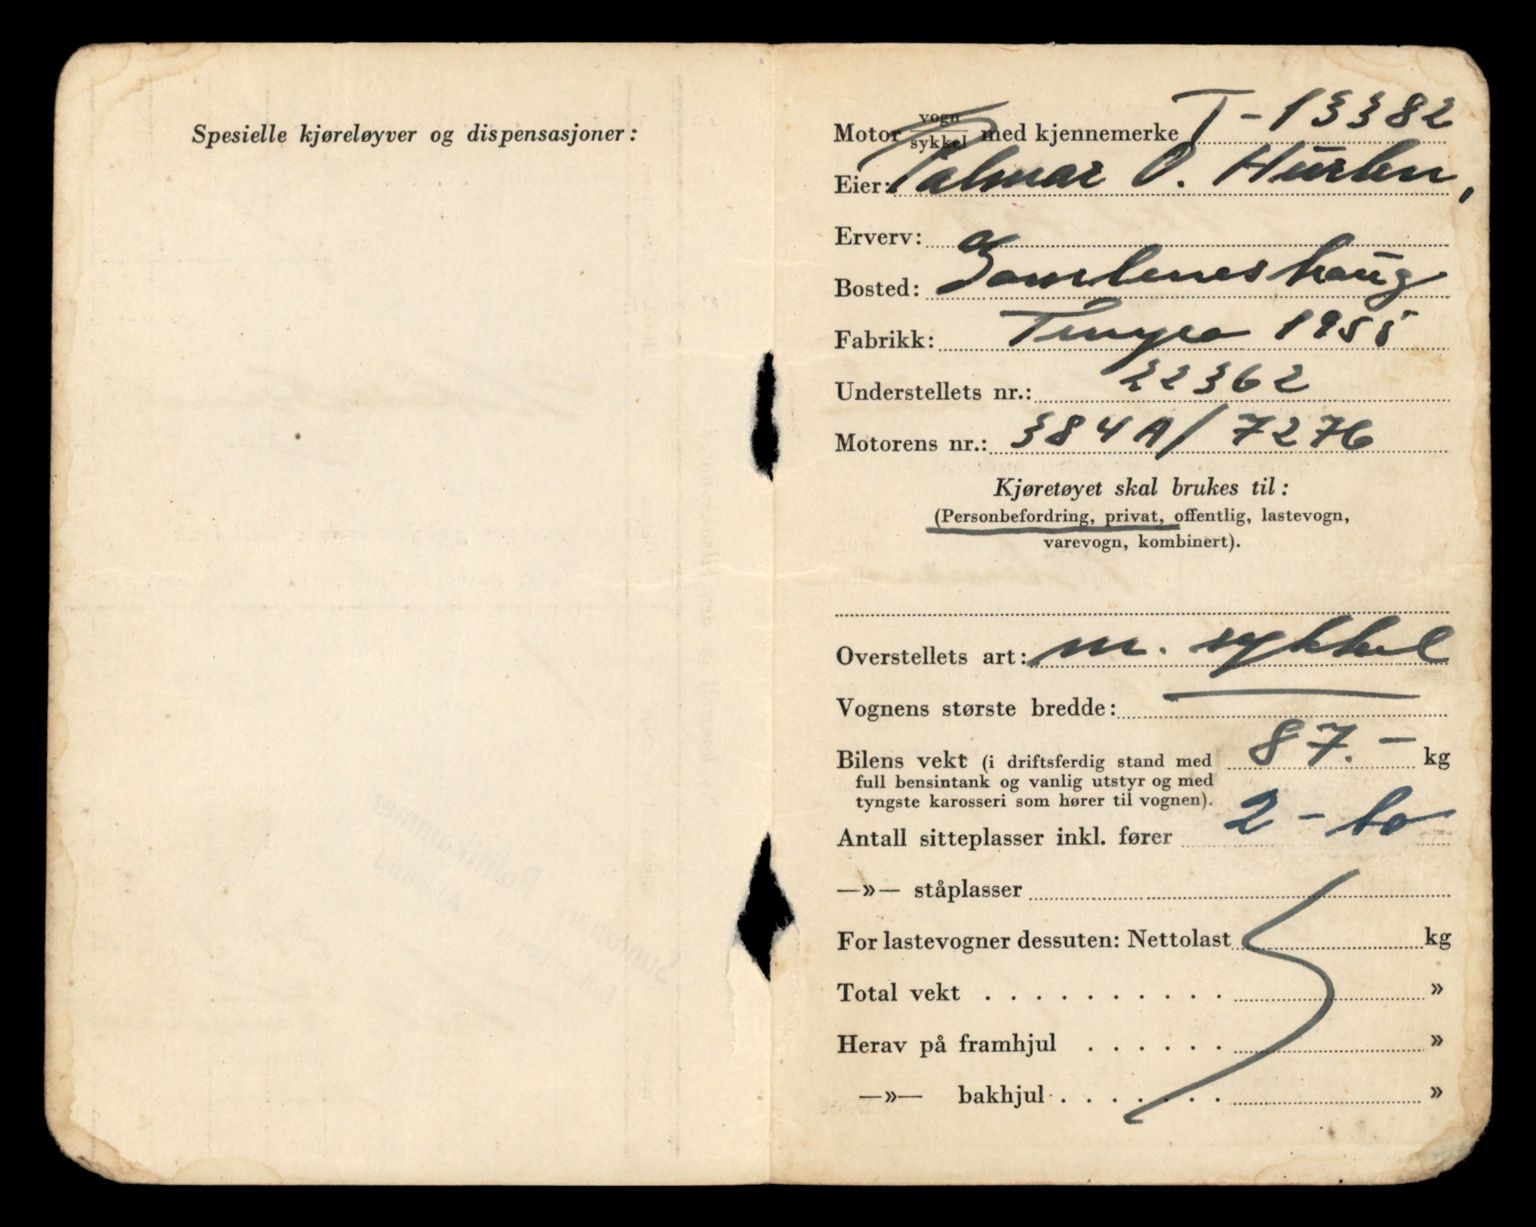 Spesielle kjøreløyver og dispensasjoner:
Motor vogn/sykkel med kjennemerke T-13382
Eier: Palmar O. Hurlen,
Erverv:
Bosted: Gamlemshaug
Fabrikk: Tempo 1955
Understellets nr.: 22362
Motorens nr.: 384A/7276
Kjøretøyet skal brukes til:
(Personbefordring, privat, offentlig, lastevogn,
varevogn, kombinert).
Overstellets art: m. sykkel
Vognens største bredde: —
Bilens vekt (i driftsferdig stand med 87.- kg
full bensintank og vanlig utstyr og med
tyngste karosseri som hører til vognen).
Antall sitteplasser inkl. fører 2 - to
—»— ståplasser
For lastevogner dessuten: Nettolast kg
Total vekt . . . . . . . . . . . »
Herav på framhjul . . . . . . »
—»— bakhjul . . . . . . . »